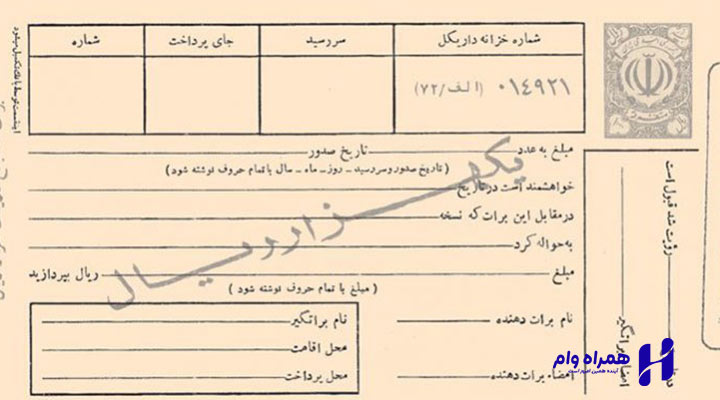 شماره خزانه داریکل
سررسید
جای پرداخت
شماره
۰۱۴۹۲۱ (الف/۷۲)
مبلغ به عدد تاریخ صدور
(تاریخ صدور و سررسید ـ روز ـ ماه ـ سال با تمام حروف نوشته شود)
خواهشمند است در تاریخ
در مقابل این برات که نسخه
به حواله کرد
مبلغ ریال بپردازید
(مبلغ با تمام حروف نوشته شود)
یکهزار ریال
نام برات دهنده
امضاء برات دهنده
نام براتگیر
محل اقامت
محل پرداخت
رؤیت شد قبول است
براتگیر
همراه وام